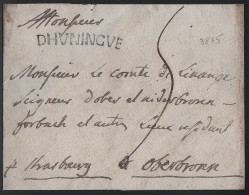 A Monsieur
DHUNINGUE
3875
Monsieur le comte de Linange
seigneur d'ober et niederbronn
forbach et autres lieux residant
p strasbourg a oberbronn